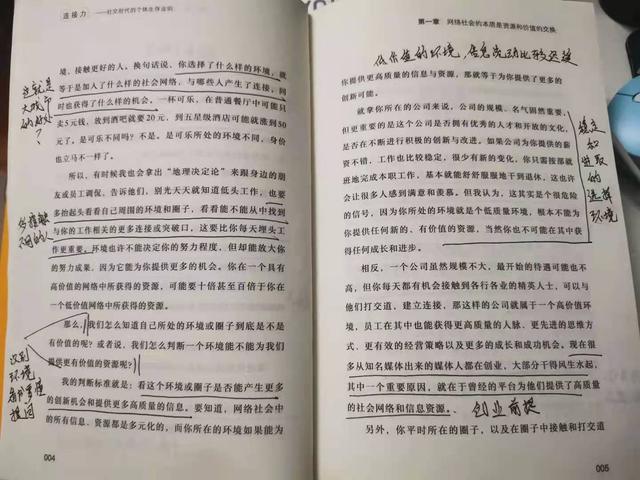 连接力——社交时代的个体生存法则
境、接触更好的人。换句话说，你选择了什么样的环境，就
等于是加入了什么样的社会网络、与哪些人产生了连接，同
时也获得了什么样的机会。一杯可乐，在普通餐厅中可能只
卖5元钱，放到酒吧就要20元，到五星级酒店可能就涨到50
元了。是可乐不同吗？不是。是可乐所处的环境不同，身价
也立马不一样了。
所以，有时候我也会拿出“地理决定论”来跟身边的朋
友或员工调侃，告诉他们，别光天天就知道低头工作，也要
多抬起头看看自己周围的环境和圈子，看看能不能从中找到
与你的工作相关的更多连接或突破口，这要比你每天埋头工
作更重要。环境也许不能决定你的努力程度，但却能放大你
的努力成果，因为它能为你提供更多的机会。你在一个具有
高价值的网络中所获得的资源，可能要十倍甚至百倍于你在
一个低价值网络中所获得的资源。
那么，我们怎么知道自己所处的环境或圈子到底是不是
有价值的呢？或者说，我们怎么判断一个环境能不能为我们
提供更有价值的资源呢？
我的判断标准就是：看这个环境或圈子是否能产生更多
的创新机会和提供更多高质量的信息。要知道，网络社会中
的所有信息、资源都是多元化的，而你所在的环境如果能为
004
这就是
大城市
的好处？
多接触
不同的人
环境
提问
第一章 网络社会的本质是资源和价值的交换
低价值的环境，信息流动比较迟缓
你提供更高质量的信息与资源，那就等于为你提供了更多的
创新可能。
就拿你所在的公司来说，公司的规模、名气固然重要，
但更重要的是这个公司是否拥有优秀的人才和开放的文化，
是否在不断进行积极的创新与改进。如果公司为你提供的薪
资不错，工作也比较稳定，很少有新的变化，你只需按部就
班地完成本职工作，基本就能舒舒服服地干到退休，这也许
会让很多人感到满意和羡慕。但我认为，这其实是个很危险
的信号，因为你所处的环境就是个低质量环境，根本不能为
你提供任何新的、有价值的资源，当然你也不可能在其中获
得任何成长和进步。
相反，一个公司虽然规模不大，最开始的待遇可能也不
高，但你每天都有机会接触到各行各业的精英人士，可以与
他们打交道，建立连接，那这样的公司就属于一个高价值环
境，员工在其中也能获得更高质量的人脉、更先进的思维方
式、更有效的经营策略以及更多的成长和成功机会。现在很
多从知名媒体出来的媒体人都在创业，大部分干得风生水起，
其中一个重要原因，就在于曾经的平台为他们提供了高质量
的社会网络和信息资源。
创业前提
另外，你平时所在的圈子，以及在圈子中接触和打交道
005
稳定
和
进取
的
选择
环境